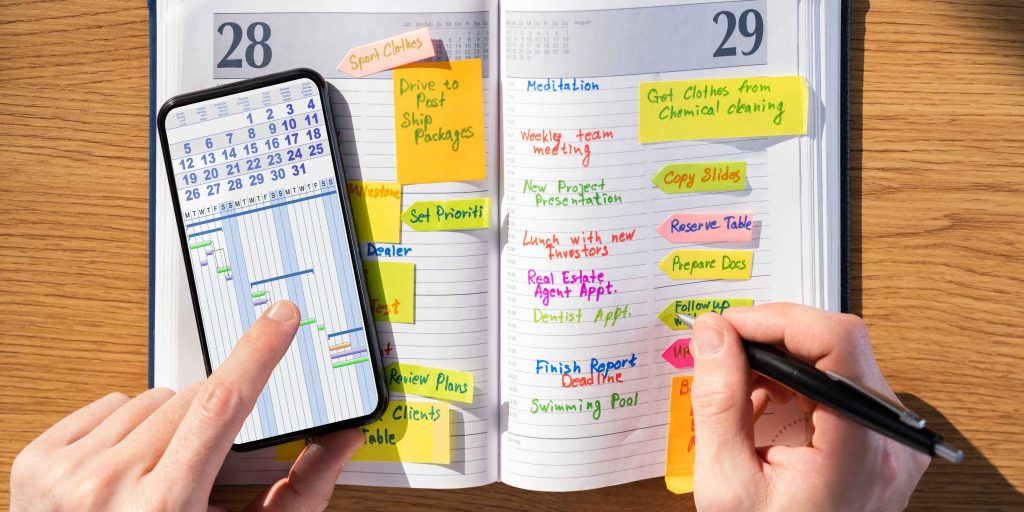 28
Sport Clothes
Drive to
Post
Ship
Packages
Milestone
Set Prioriti
Dealer
Test
Review Plans
Clients
Table
1 2 3 4
5 6 7 8 9 10 11
12 13 14 15 16 17 18
19 20 21 22 23 24 25
26 27 28 29 30 31
M T W T F S S M T W T F S S M T W T F S S
August
29
Meditation
Weekly team
meeting
New Project
Presentation
Lunch with new
Investors
Real Estate
Agent Appt.
Dentist Appt.
Finish Report
Deadline
Swimming Pool
Got Clothes from
Chemical cleaning
Copy Slides
Reserve Table
Prepare Docs
Follow up